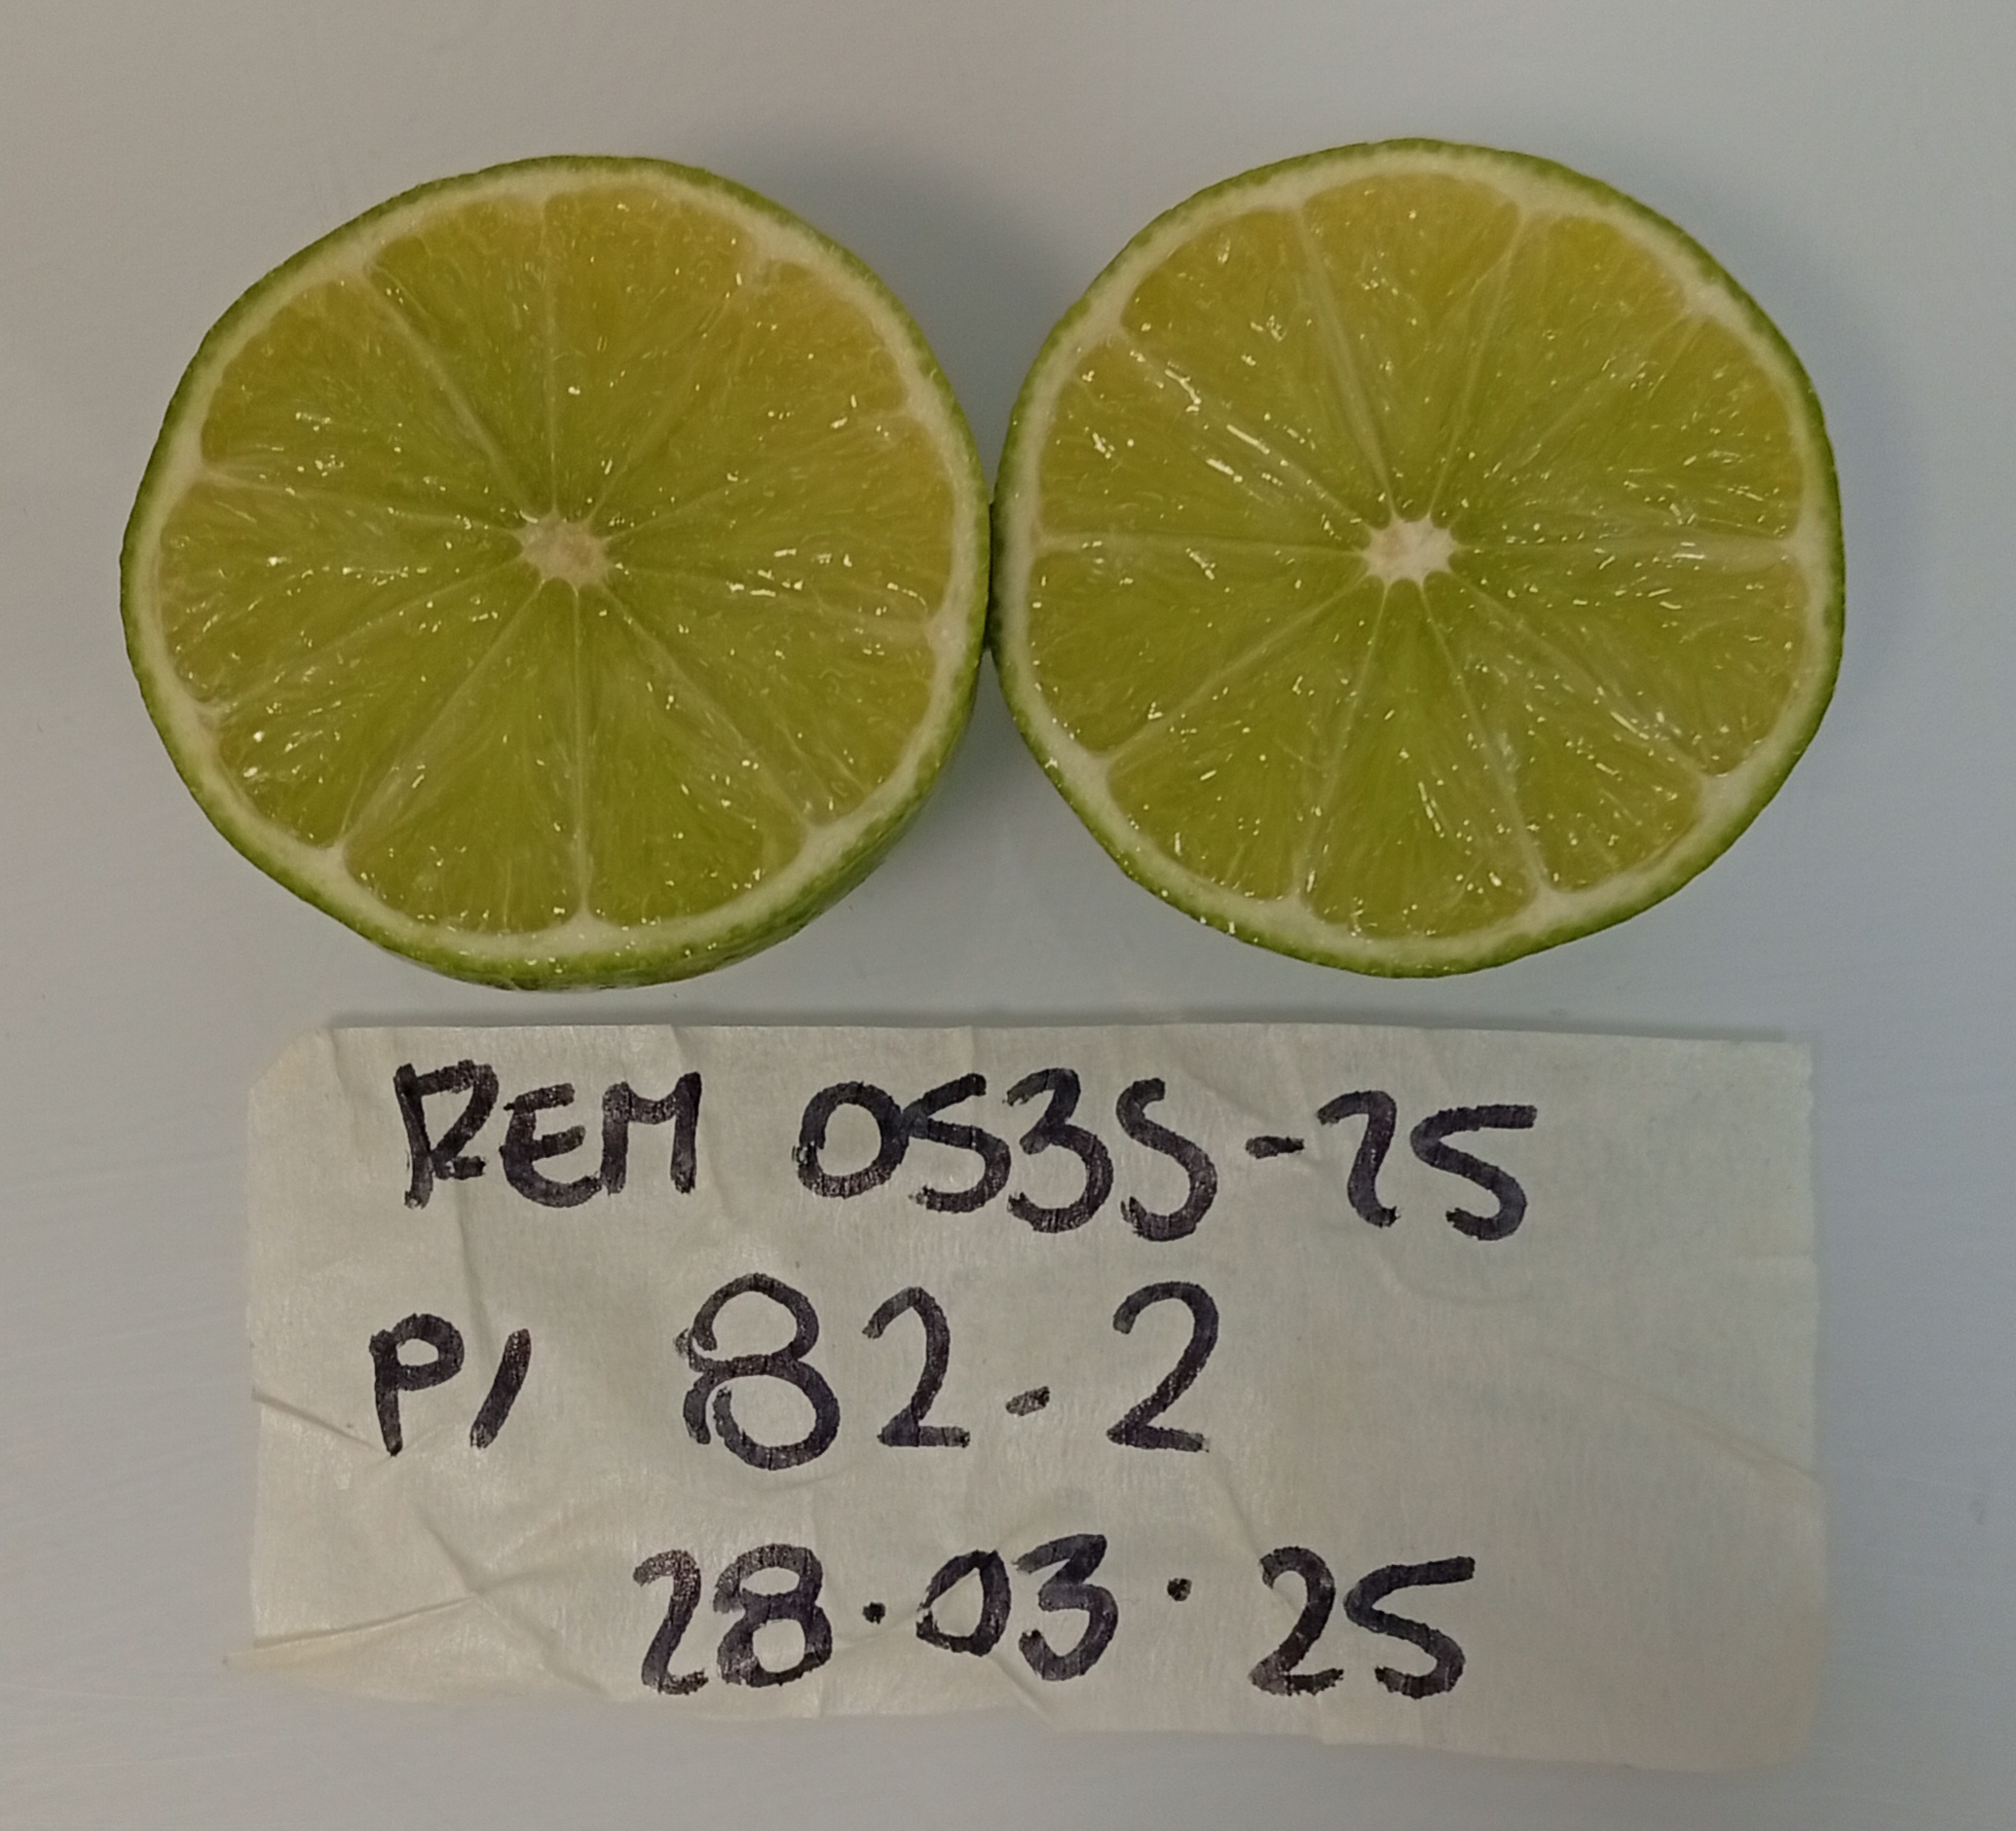 REM 0535-25
P/ 82-2
28.03.25